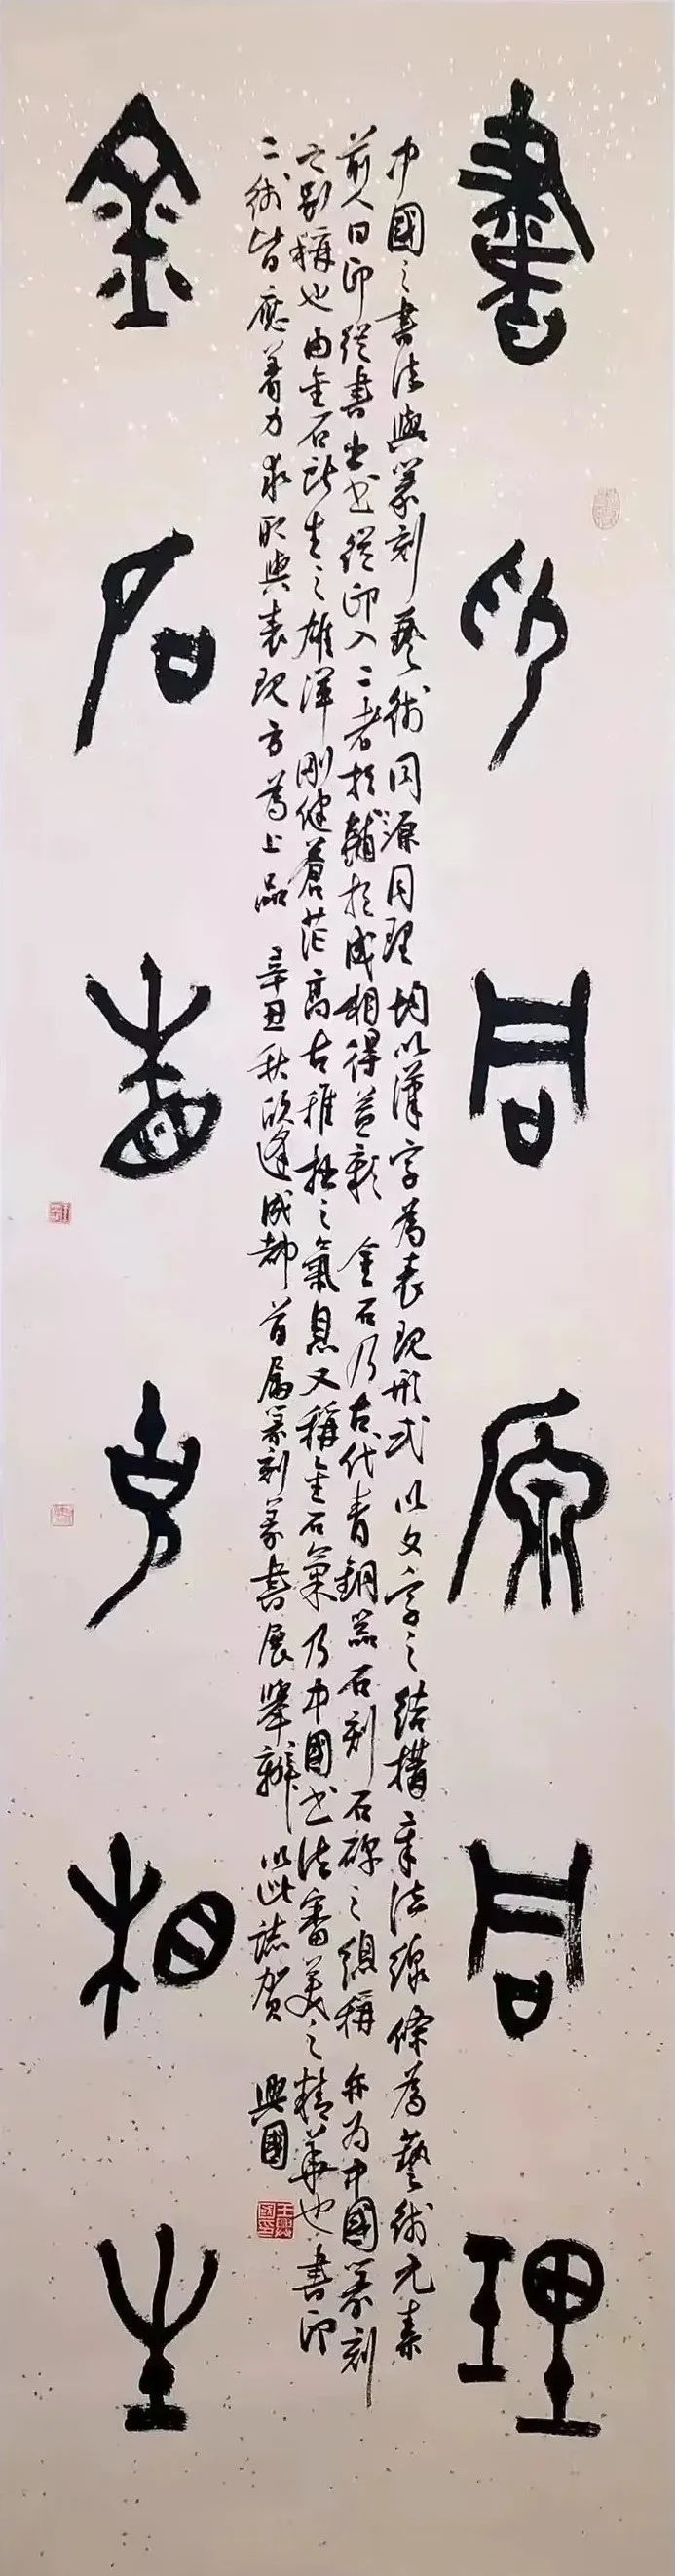 書印同原同理
中國之書法與篆刻藝術同源同理均以漢字為表現形式以文字之結構章法線條為藝術元素
前人曰印從書出書從印入二者相輔相成相得益彰金石乃古代青銅器石刻石碑之總稱亦為中國篆刻
之別稱也由金石所生之雄渾剛健蒼茫高古稚拙之氣息又稱金石氣乃中國書法審美之精華也書印
二術皆應着力求取與表現方為上品辛丑秋欣逢成都首屆篆刻篆書展舉辦以此誌賀興國
王興國印
金石書相生